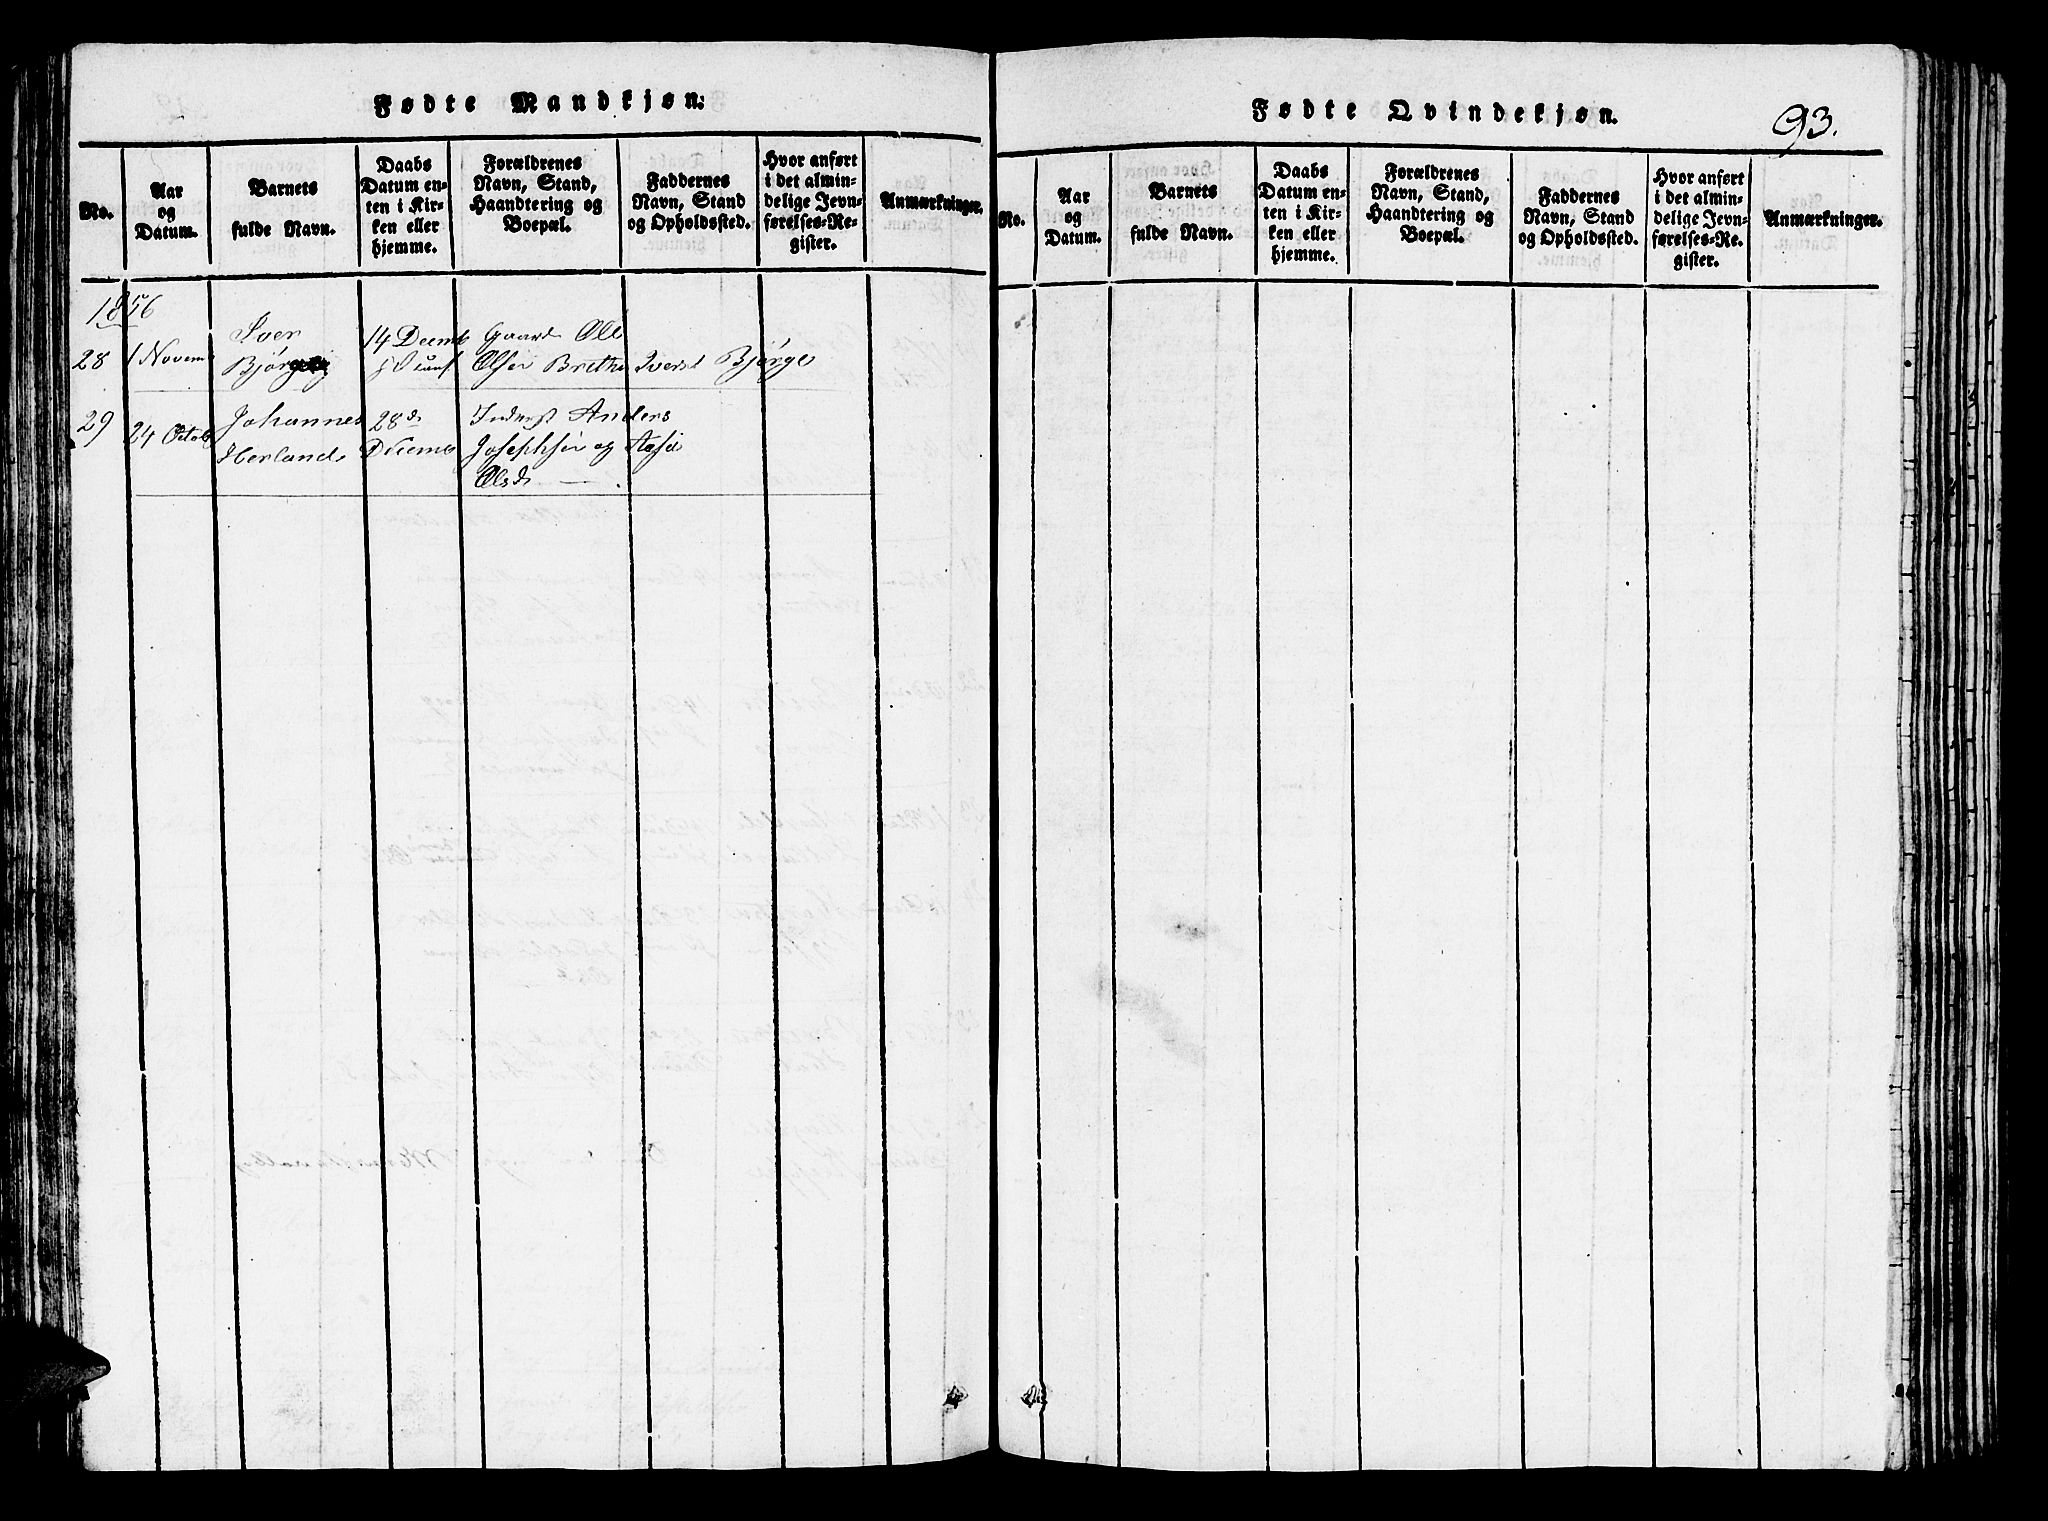 Fødte Mandkjøn:
No.
Aar
og
Datum.
Barnets
fulde Navn.
Daabs
Datum en-
ten i Kir-
ken eller
hjemme.
Forældrenes
Navn, Stand,
Haandtering og
Boepæl.
Faddernes
Navn, Stand
og Opholdssted.
Hvor anført
i det almin-
delige Jevn-
førelses-Re-
gister.
Anmærkninger.
1856
28
1 Novem
Iver
Bjørge
14 Decemb
Gaard Ole
Olsen Brethe Iversd Bjørge
29
24 Octob
Johannes
Herland
28de
Decemb
Inderst Anders
Josephsen og Aase
Olsd
Fødte Qvindekjøn.
93.
No.
Aar
og
Datum.
Barnets
fulde Navn.
Daabs
Datum en-
ten i Kir-
ken eller
hjemme.
Forældrenes
Navn, Stand,
Haandtering og
Boepæl.
Faddernes
Navn, Stand
og Opholdssted.
Hvor anført
i det almin-
delige Jevn-
førelses-Re-
gister.
Anmærkninger.